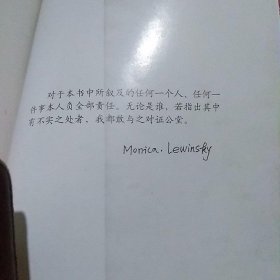 对于本书中所叙及的任何一个人、任何一
件事本人负全部责任。无论是谁，若指出其中
有不实之处者，我都敢与之对证公堂。
Monica. Lewinsky